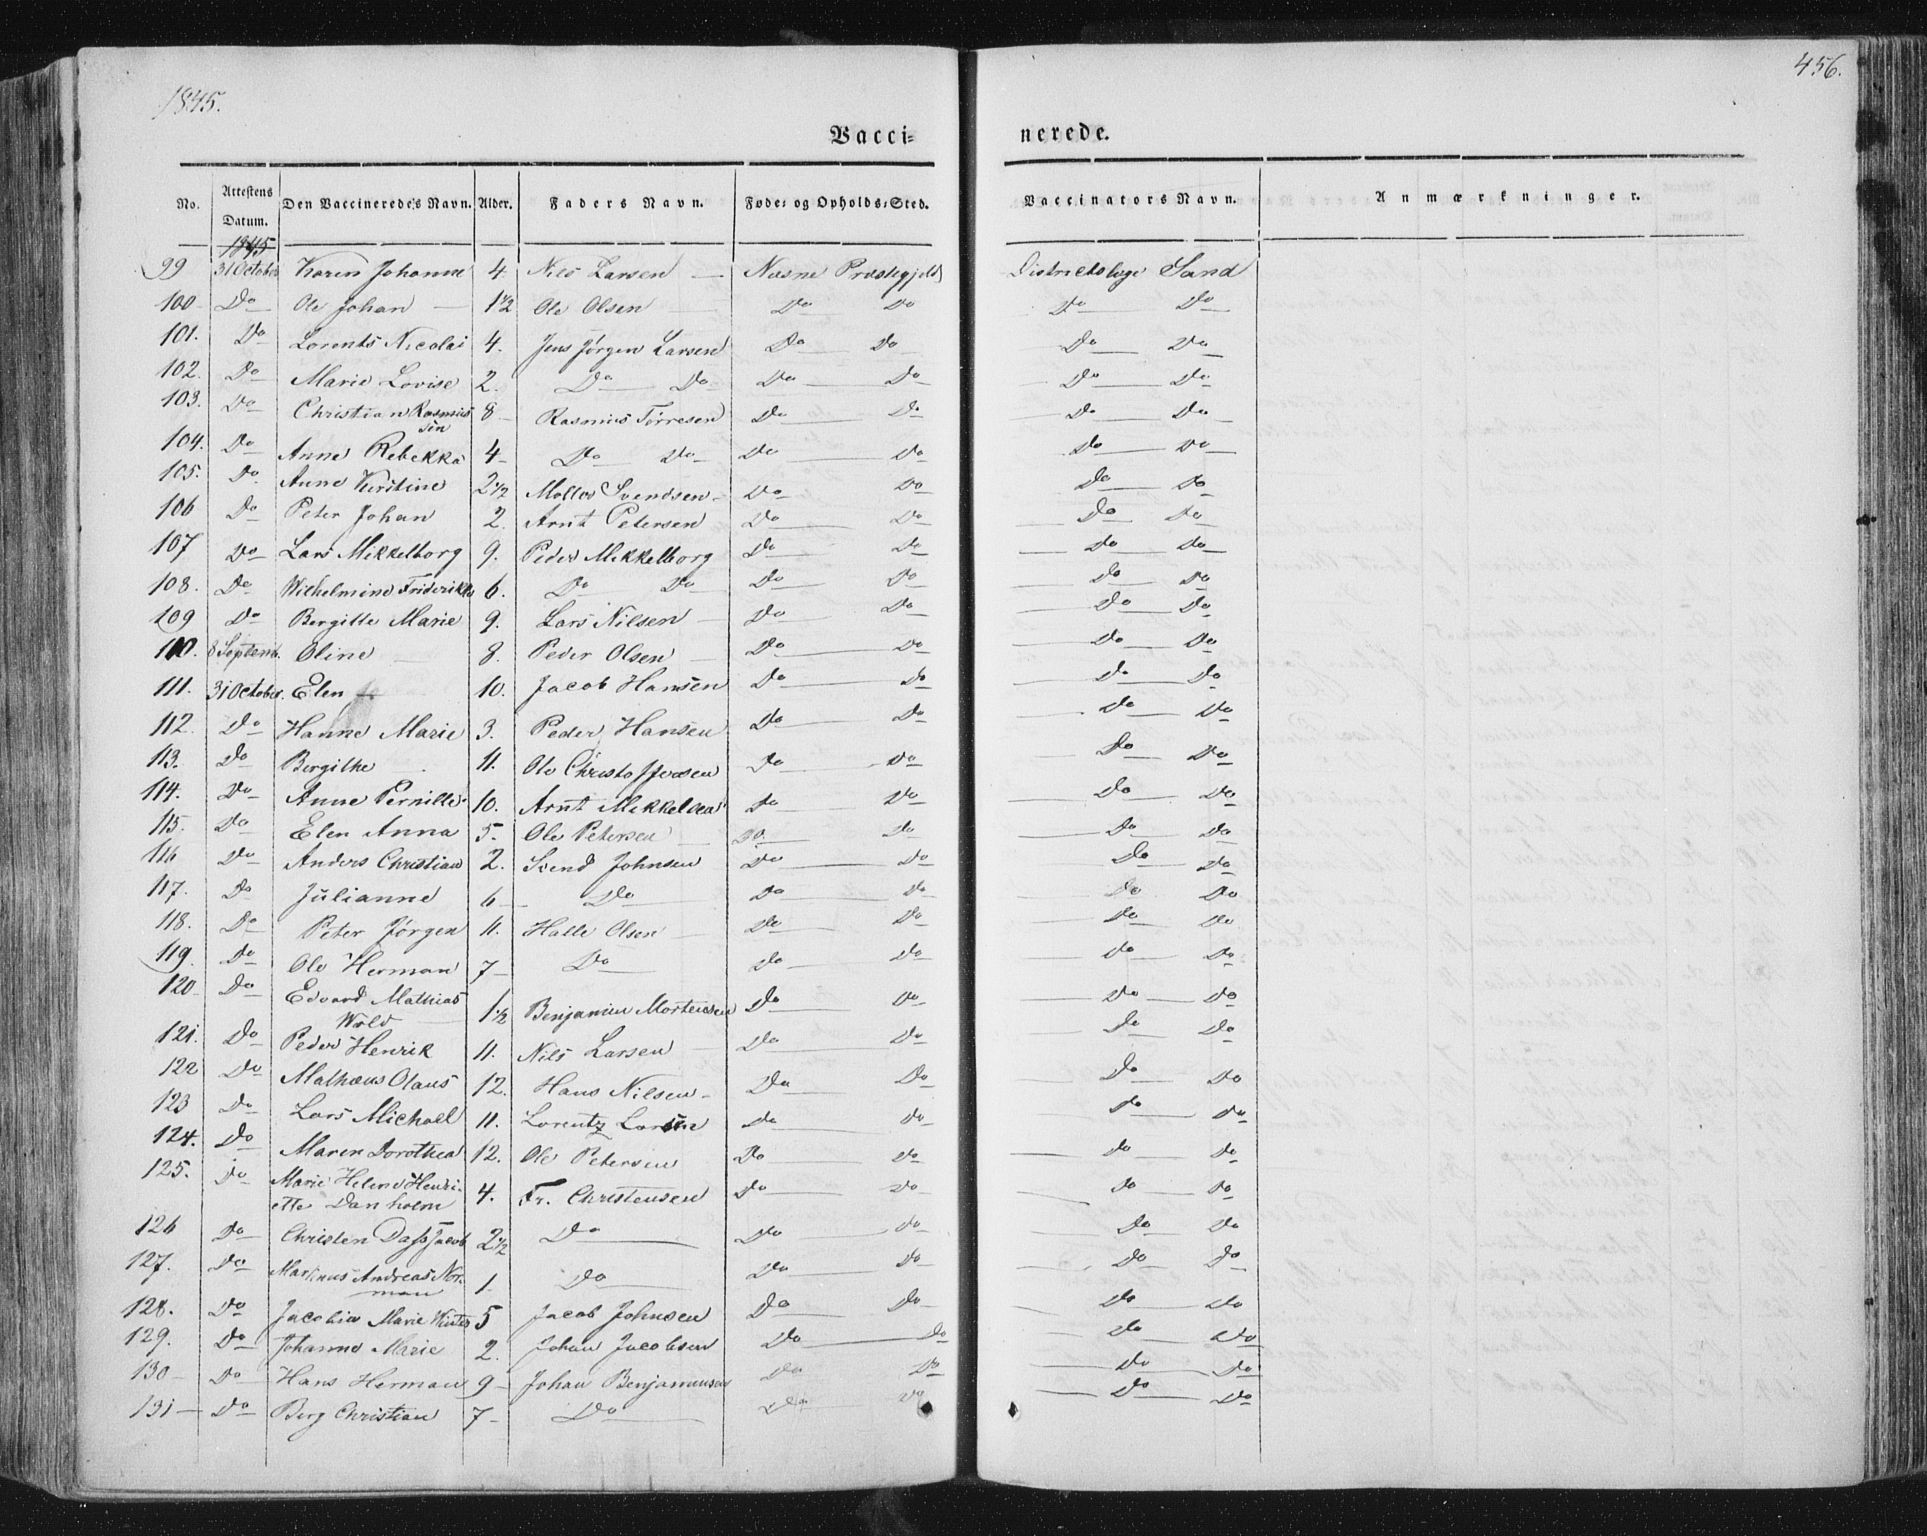 1845.
456.
Vacci-
nerede.
No. Attestens Datum. Den Vaccineredes Navn. Alder. Faders Navn. Føde- og Opholds-Sted. Vaccinators Navn. Anmærkninger.
1845
99 31 October Karen Johanne 4 Nils Larsen Næsne Præstegjeld Districtslæge Sand
100 Do Ole Johan 1 1/2 Ole Olsen Do Do Do Do
101. Do Lorents Nicolai 4. Jens Jørgen Larsen Do Do Do Do
102. Do Marie Lovise 2. Do Do Do Do Do Do
103. Do Christian Rasmus 8 Rasmus Tørresen Do Do Do Do
sen
104. Do Anne Rebekka 4 Do Do Do Do Do Do
105. Do Anne Kirstine 2 1/2 Svendsen Do Do Do Do
106 Do Peter Johan 2. Arnt Petersen Do Do Do Do
107 Do Lars Mikkelborg 9. Peder Mikkelborg Do Do Do Do
108. Do Wilhelmine Friderikke 6. Do Do Do Do Do Do
109 Do Bergitte Marie 9. Lars Nilsen Do Do Do Do
110. 8 Septemb. Oline 8. Peder Olsen Do Do Do Do
111. 31 October. Elen 10. Jacob Hansen Do Do Do Do
112. Do Hanne Marie 3. Peder Hansen Do Do Do Do
113. Do Bergithe 11. Ole Christoffersen Do Do Do Do
114. Do Anne Pernille 10. Arnt Mikkelsen Do Do Do Do
115. Do Elen Anna 5. Ole Petersen Do Do Do Do
116 Do Anders Christian 2. Svend Johnsen Do Do Do Do
117. Do Julianne 6 Do Do Do Do Do
118. Do Peter Jørgen 11. Halle Olsen Do Do Do Do
119. Do Ole Herman 7 Do Do Do Do Do
120 Do Edvard Mathias 1 1/2 Benjamin Mortensen Do Do Do Do
Wold
121. Do Peder Henrik 11. Nils Larsen Do Do Do Do
122 Do Mathæus Olaus 12. Hans Nilsen Do Do Do Do
123 Do Lars Michael 11. Lorentz Larsen Do Do Do Do
124. Do Maren Dorothea 12. Ole Petersen Do Do Do Do
125. Do Marie Helene Henri- 4. Fr. Christensen Do Do Do Do
ette Danholm
126 Do Christen Dass Jacob 2 1/2 Do Do Do Do Do
127. Do Martinus Andreas Nor- 1. Do Do Do Do Do
man
128. Do Jacobine Marie Winter 5 Jacob Johnsen Do Do Do Do
129. Do Johanne Marie 2. Johan Jacobsen Do Do Do Do
130 Do Hans Herman 9 Johan Benjaminsen Do Do Do Do
131 Do Berg Christian 7 Do Do Do Do Do